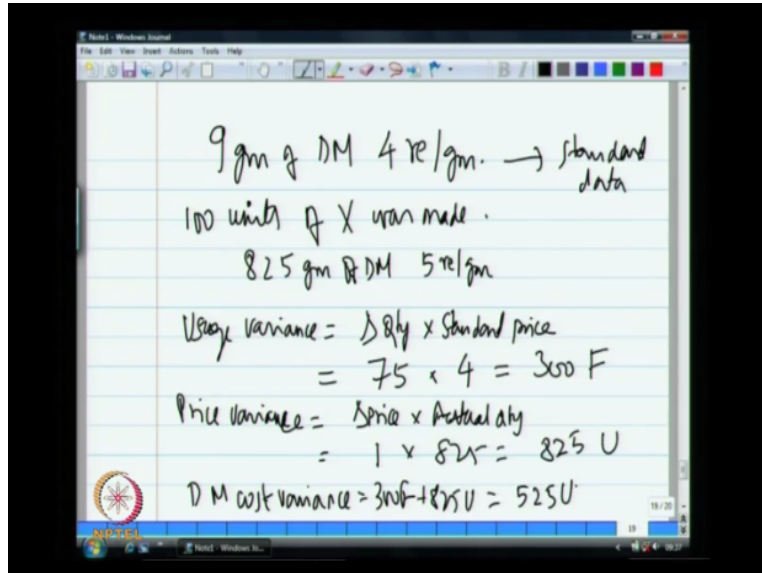 Note1 - Windows Journal
File Edit View Insert Actions Tools Help
B I
9 gm of DM 4 re/gm. → standard
data
100 units of X was made.
825 gm of DM 5 re/gm
Usage variance = Δ Qty x Standard price
= 75 x 4 = 300 F
Price variance = Δ price x Actual qty
= 1 x 825 = 825 U
DM cost variance = 300F + 825U = 525U
19/20
19
NPTEL
Note1 - Windows Jo...
09:37